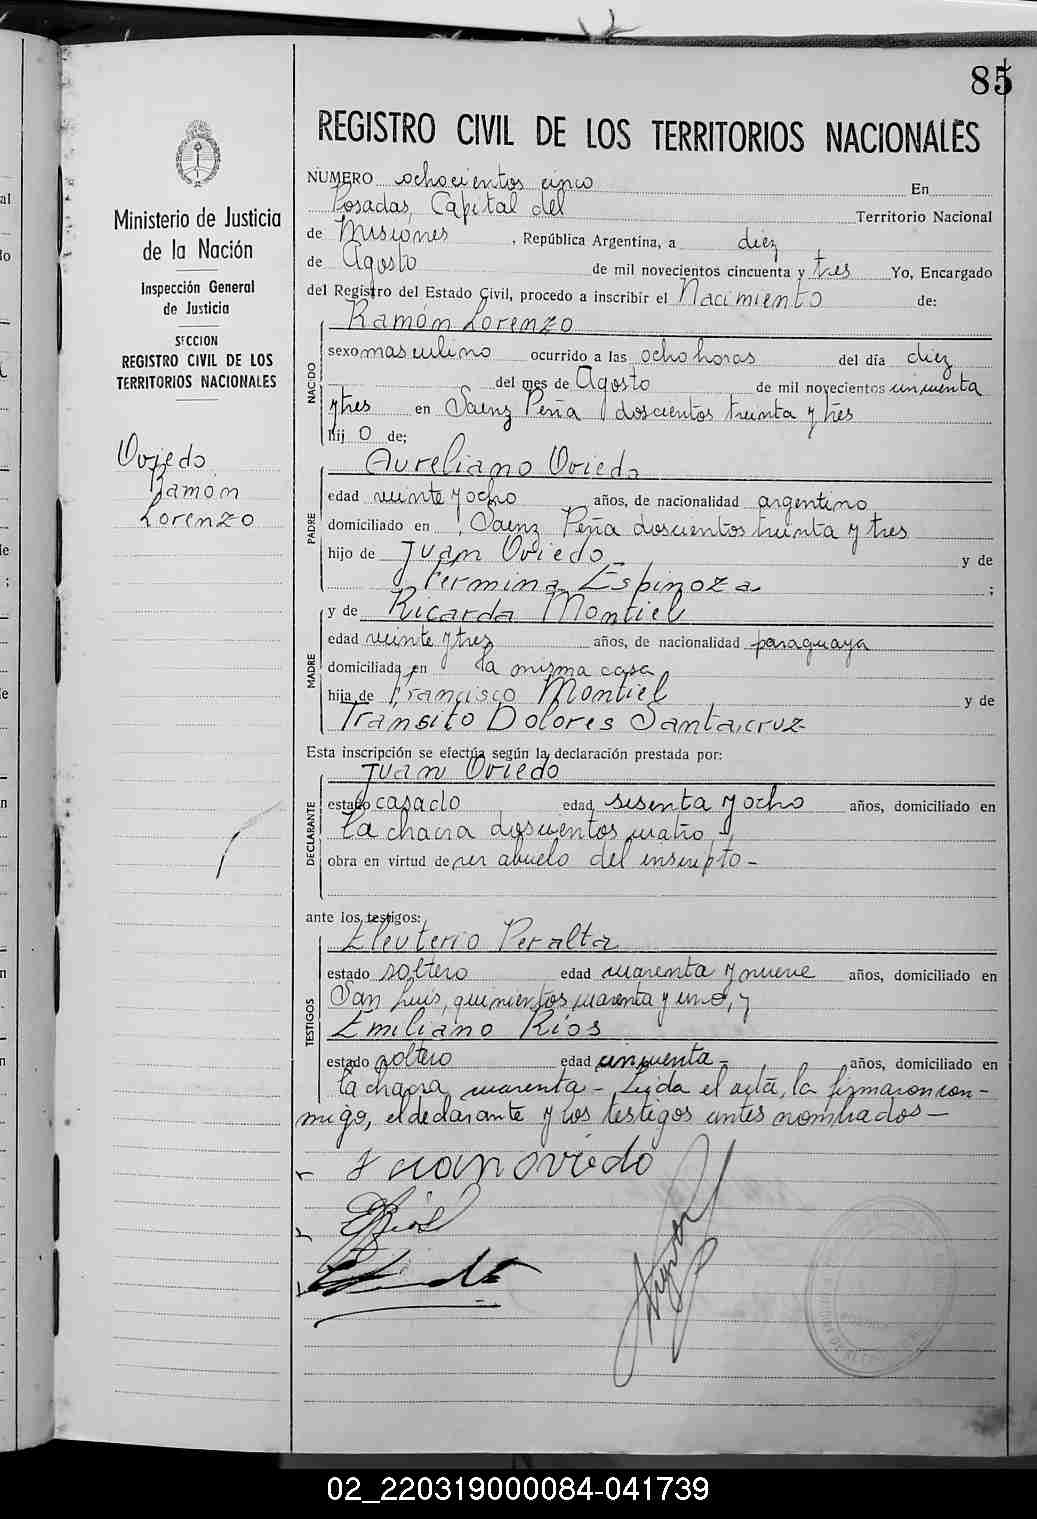 85
REGISTRO CIVIL DE LOS TERRITORIOS NACIONALES
Ministerio de Justicia
de la Nación
Inspección General
de Justicia
SECCION
REGISTRO CIVIL DE LOS
TERRITORIOS NACIONALES
Oviedo
Ramón
Lorenzo
NUMERO ochocientos cinco En
Posadas, Capital del Territorio Nacional
de Misiones, República Argentina, a diez
de Agosto de mil novecientos cincuenta y tres Yo, Encargado
del Registro del Estado Civil, procedo a inscribir el Nacimiento de:
NACIDO
Ramón Lorenzo
sexo masculino ocurrido a las ocho horas del día diez
del mes de Agosto de mil novecientos cincuenta
y tres en Saenz Peña doscientos treinta y tres
hij o de;
PADRE
Aureliano Oviedo
edad veinte y ocho años, de nacionalidad argentino
domiciliado en Saenz Peña doscientos treinta y tres
hijo de Juan Oviedo y de
Fermina Espinoza ;
MADRE
y de Ricarda Montiel
edad veinte y tres años, de nacionalidad paraguaya
domiciliada en la misma casa
hija de Francisco Montiel y de
Transito Dolores Santacruz
Esta inscripción se efectúa según la declaración prestada por:
DECLARANTE
Juan Oviedo
estado casado edad sesenta y ocho años, domiciliado en
la chacra doscientos cuatro -
obra en virtud de ser abuelo del inscripto -
ante los testigos:
TESTIGOS
Eleuterio Peralta
estado soltero edad cuarenta y nueve años, domiciliado en
San Luis, quinientos cuarenta y uno, y
Emiliano Ríos
estado soltero edad cincuenta - años, domiciliado en
la chacra cuarenta - Leída el acta, la firmaron con-
migo, el declarante y los testigos antes nombrados -
Juan oviedo
ERios
02_220319000084-041739